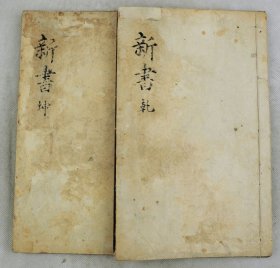 新書乾
新書坤